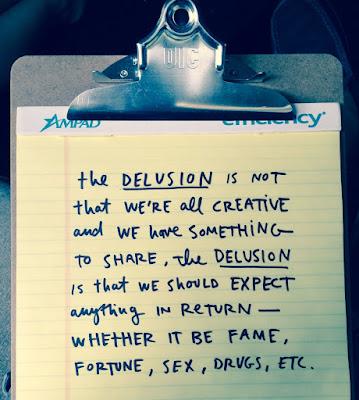 OIC
AMPAD efficiency
the DELUSION IS NOT
that WE'RE all CREATIVE
and WE have SOMETHING
TO SHARE, the DELUSION
is that WE SHOULD EXPECT
anything IN RETURN —
WHETHER IT BE FAME,
FORTUNE, SEX, DRUGS, ETC.